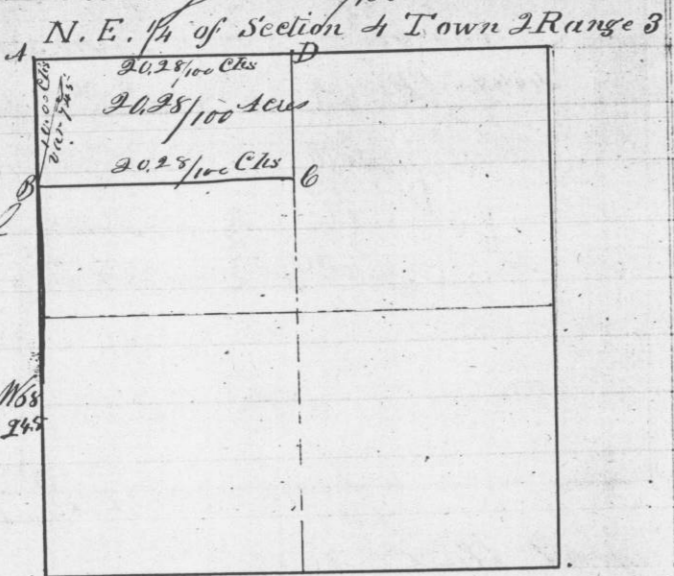 N. E. 1/4 of Section 4 Town 2 Range 3
A D
20.28/100 Chs
10.00 Chs
20.28/100 Acres
20.28/100 Chs
B C